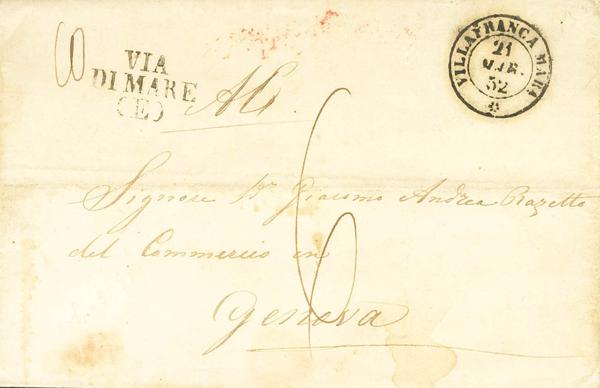 VIA
DI MARE
(E)
VILLAFRANCA MAR
21
MAR.
52
Al
6
Signore Giacomo Andrea Razetto
del Commercio in
Genova